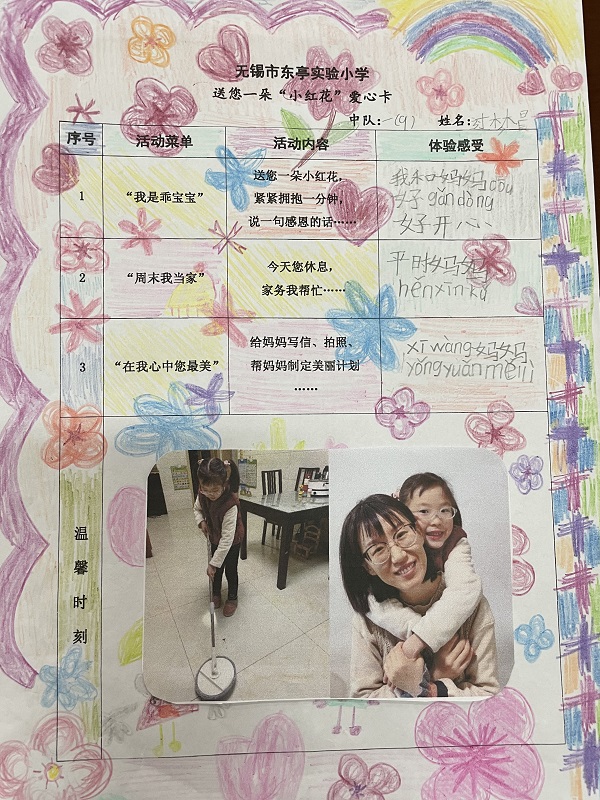 无锡市东亭实验小学
送您一朵“小红花”爱心卡
中队：一(9) 姓名：
序号 活动菜单 活动内容 体验感受
1 “我是乖宝宝” 送您一朵小红花，
紧紧拥抱一分钟，
说一句感恩的话……
我和妈妈dōu
好gǎndòng
好开心
2 “周末我当家” 今天您休息，
家务我帮忙……
平时妈妈
hěnxīnkǔ
3 “在我心中您最美” 给妈妈写信、拍照、
帮妈妈制定美丽计划
……
xīwàng妈妈
yǒngyuǎnměilì
温馨时刻